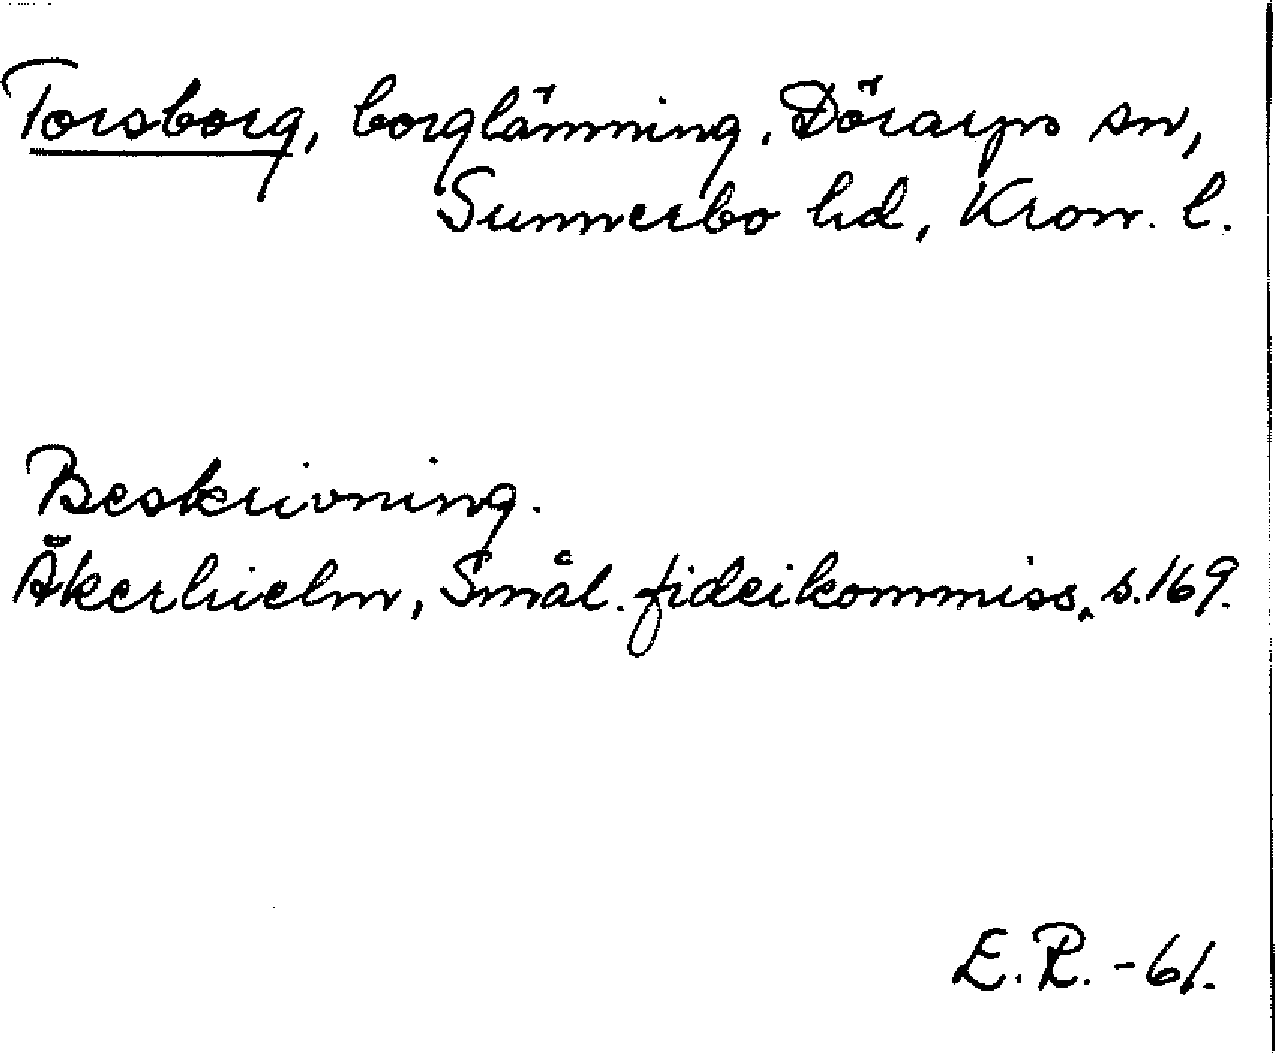 Torsborg, borglämning. Dörarps sn,
Sunnerbo hd, Kron. l.
Beskrivning.
Åkerhielm, Smål. fideikommiss, s. 169.
E. R. -61.